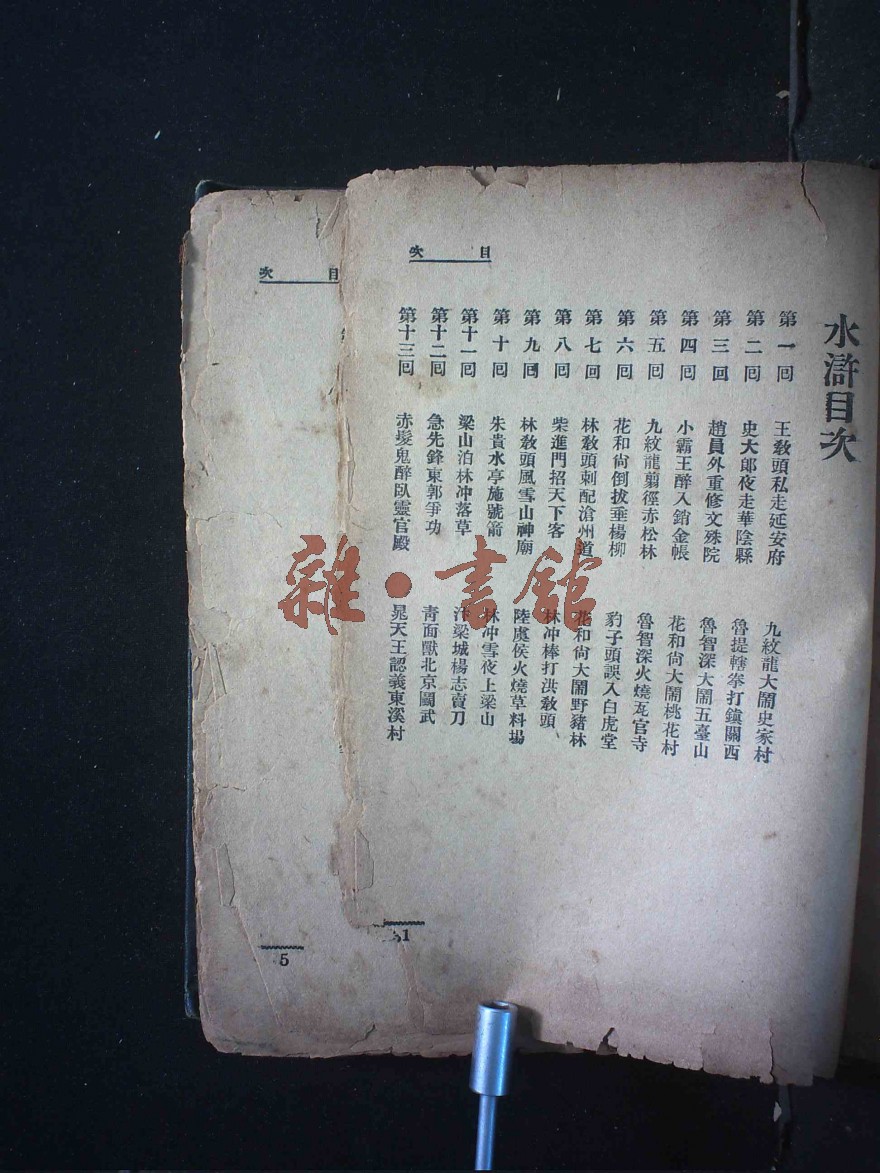 水滸目次
目次
第一回 王敎頭私走延安府 九紋龍大鬧史家村
第二回 史大郞夜走華陰縣 魯提轄拳打鎭關西
第三回 趙員外重修文殊院 魯智深大鬧五臺山
第四回 小霸王醉入銷金帳 花和尙大鬧桃花村
第五回 九紋龍翦徑赤松林 魯智深火燒瓦官寺
第六回 花和尙倒拔垂楊柳 豹子頭誤入白虎堂
第七回 林敎頭刺配滄州道 花和尙大鬧野豬林
第八回 柴進門招天下客 林冲棒打洪敎頭
第九回 林敎頭風雪山神廟 陸虞侯火燒草料場
第十回 朱貴水亭施號箭 林冲雪夜上梁山
第十一回 梁山泊林冲落草 汴梁城楊志賣刀
第十二回 急先鋒東郭爭功 靑面獸北京鬬武
第十三回 赤髮鬼醉臥靈官殿 晁天王認義東溪村
1
目次
5
雜·書館